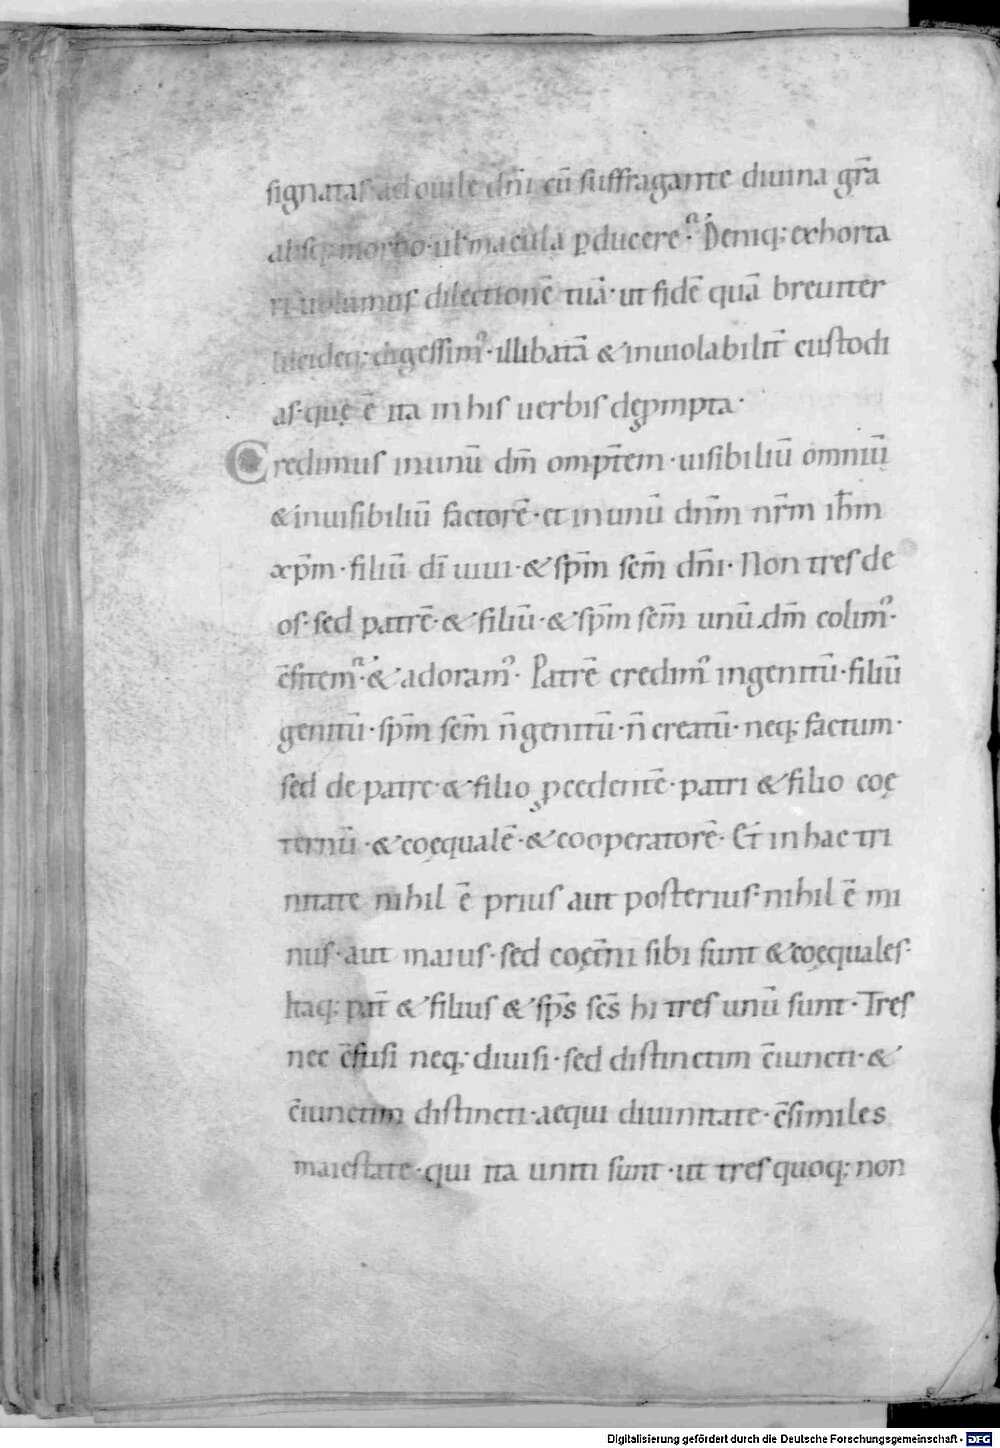 signatas ad ouile dn̄i cū suffragante diuina gr̄a
absq; morbo · ul̄ macula ꝑducere · Deniq; exhorta
ri uolumus dilectionē tuā · ut fidē quā breuiter
digessim᷒ · illibatā & inuiolabilit̄ custodi
as · quę ē ita in his uerbis deꝓmpta ·
Credimus in unū dm̄ omp̄tem · uisibiliū omniū
& inuisibiliū factorē · et in unū dn̄m nr̄m ih̄m
xp̄m · filiū dī uiui · & sp̄m sc̄m dn̄i · Non tres de
os · sed patrē · & filiū · & sp̄m sc̄m unū dm̄ colim᷒ ·
c̄fitem᷒ · & adoram᷒ · Patrē credim᷒ ingenitū · filiū
genitū · sp̄m sc̄m n̄ genitū · n̄ creatū · neq; factum ·
sed de patre · & filio ꝓcedentē · patri & filio coę
ternū · & coęqualē · & cooperatorē · Et in hac tri
nitate nihil ē prius aut posterius · nihil ē mi
nus · aut maius · sed coęt̄ni sibi sunt & coęquales ·
Itaq; pat̄ & filius & sp̄s sc̄s hi tres unū sunt · Tres
nec c̄fusi neq; diuisi · sed distinctim c̄iuncti · &
c̄iunctim distincti · aequi diuinitate · c̄similes
maiestate · qui ita uniti sunt · ut tres quoq; non
Digitalisierung gefördert durch die Deutsche Forschungsgemeinschaft - DFG